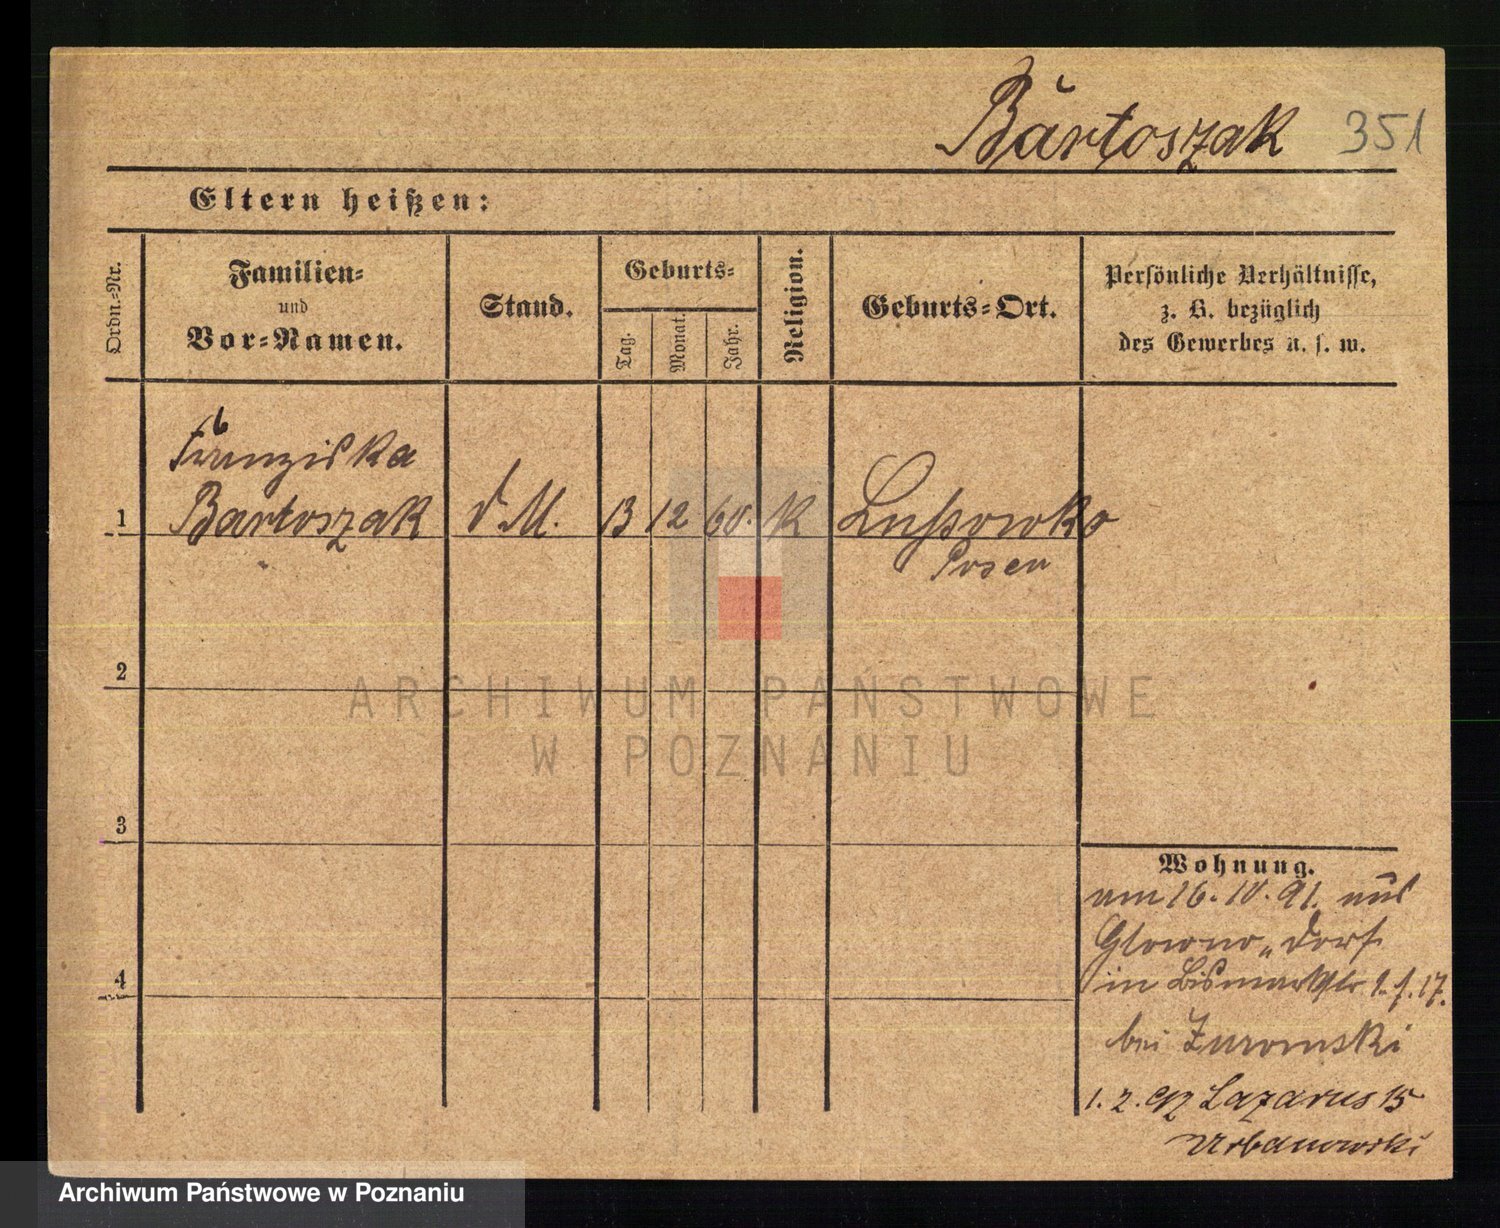 Bartoszak 351
Eltern heißen:
Ordn.-Nr.
Familien-
und
Vor-Namen.
Stand.
Geburts-
Tag.
Monat.
Jahr.
Religion.
Geburts-Ort.
Persönliche Verhältnisse,
z. B. bezüglich
des Gewerbes u. s. w.
Franziska
1 Bartoszak d M. 13 12 60. K Lussowko
Posen
2
3
4
Wohnung.
am 16.10.91. aus
Glowno, Dorf
in Bismarckstr 17.
bei Zuromski
1.2.92 Lazarus 15
Urbanowski
ARCHIWUM PAŃSTWOWE
W POZNANIU
Archiwum Państwowe w Poznaniu